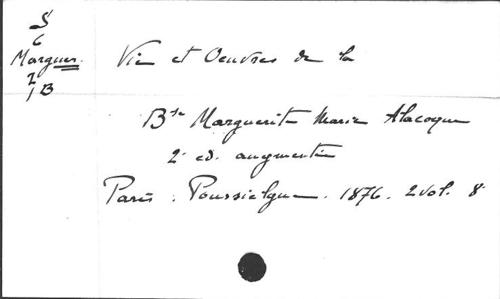 S
6
Margues.
2
1 B
Vie et Oeuvres de la
Bse Marguerite Marie Alacoque
2e ed. augmentée
Paris. Poussielgue. 1876. 2 vol. 8°